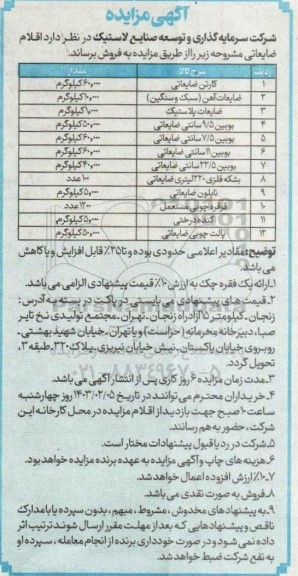 آگهی مزایده
شرکت سرمایه گذاری و توسعه صنایع لاستیک در نظر دارد اقلام
ضایعاتی مشروحه زیر را از طریق مزایده به فروش برساند.
ردیف شرح کالا مقدار
۱ کارتن ضایعاتی ۶۰,۰۰۰کیلوگرم
۲ ضایعات آهن (سبک و سنگین) ۱۰,۰۰۰کیلوگرم
۳ ضایعات پلاستیک
۴ بوبین ۹/۵ سانتی ضایعاتی ۵۰,۰۰۰کیلوگرم
۵ بوبین ۷/۵ سانتی ضایعاتی
۶ بوبین ۱۱ سانتی ضایعاتی
۷ بوبین ۲۲/۵ سانتی ضایعاتی ۴۰,۰۰۰کیلوگرم
۸ بشکه فلزی ۲۲۰ لیتری ضایعاتی ۱۰۰ عدد
۹ نایلون ضایعاتی ۵,۰۰۰کیلوگرم
۱۰ قرقره چوبی مستعمل ۱۲۰۰ عدد
۱۱ کنده درختی ۵,۰۰۰کیلوگرم
۱۲ پالت چوبی ضایعاتی ۵۰,۰۰۰کیلوگرم
توضیح: مقادیر اعلامی حدودی بوده و تا ۲۵٪ قابل افزایش و یا کاهش
می باشد.
۱.ارائه یک فقره چک به ارزش ۱۰٪ قیمت پیشنهادی الزامی می باشد.
۲.قیمت های پیشنهادی می بایستی در پاکت در بسته به آدرس:
زنجان، کیلومتر ۱۵ آزادراه زنجان_تهران_مجتمع تولیدی نخ تایر
صبا، دبیرخانه محرمانه (حراست) و یا تهران، خیابان شهید بهشتی،
روبروی خیابان پاکستان، نبش خیابان نیریزی، پلاک ۳۲۰، طبقه ۳،
تحویل گردد.
۳.مدت زمان مزایده ۷ روز کاری پس از انتشار آگهی می باشد.
۴.خریداران محترم می توانند در تاریخ ۱۴۰۳/۰۲/۰۵ روز چهارشنبه
ساعت ۱۰ صبح جهت بازدید از اقلام مزایده در محل کارخانه این
شرکت، حضور به هم رسانند.
۵.شرکت در رد یا قبول پیشنهادات مختار است.
۶.هزینه های چاپ و آگهی مزایده به عهده برنده مزایده خواهد بود.
۷.۱۰٪ ارزش افزوده اعمال خواهد شد.
۸.فروش به صورت نقدی می باشد.
۹.به پیشنهادهای مخدوش، مشروط، مبهم، بدون سپرده یا با مدارک
ناقص و پیشنهادهایی که بعد از مهلت مقرر ارسال شوند ترتیب اثر
داده نمی شود و در صورت خودداری برنده از انجام معامله، سپرده او
به نفع شرکت ضبط خواهد شد.
۰۲۱-۸۸۳۴۹۶۷۰-۵